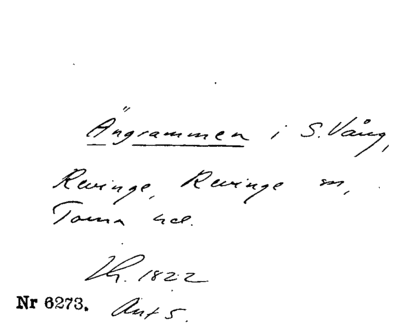 Ängrammen i S. Vång,
Revinge, Revinge sn,
Torna hd.
Lh. 1822
Nr 6273. Ant 5.